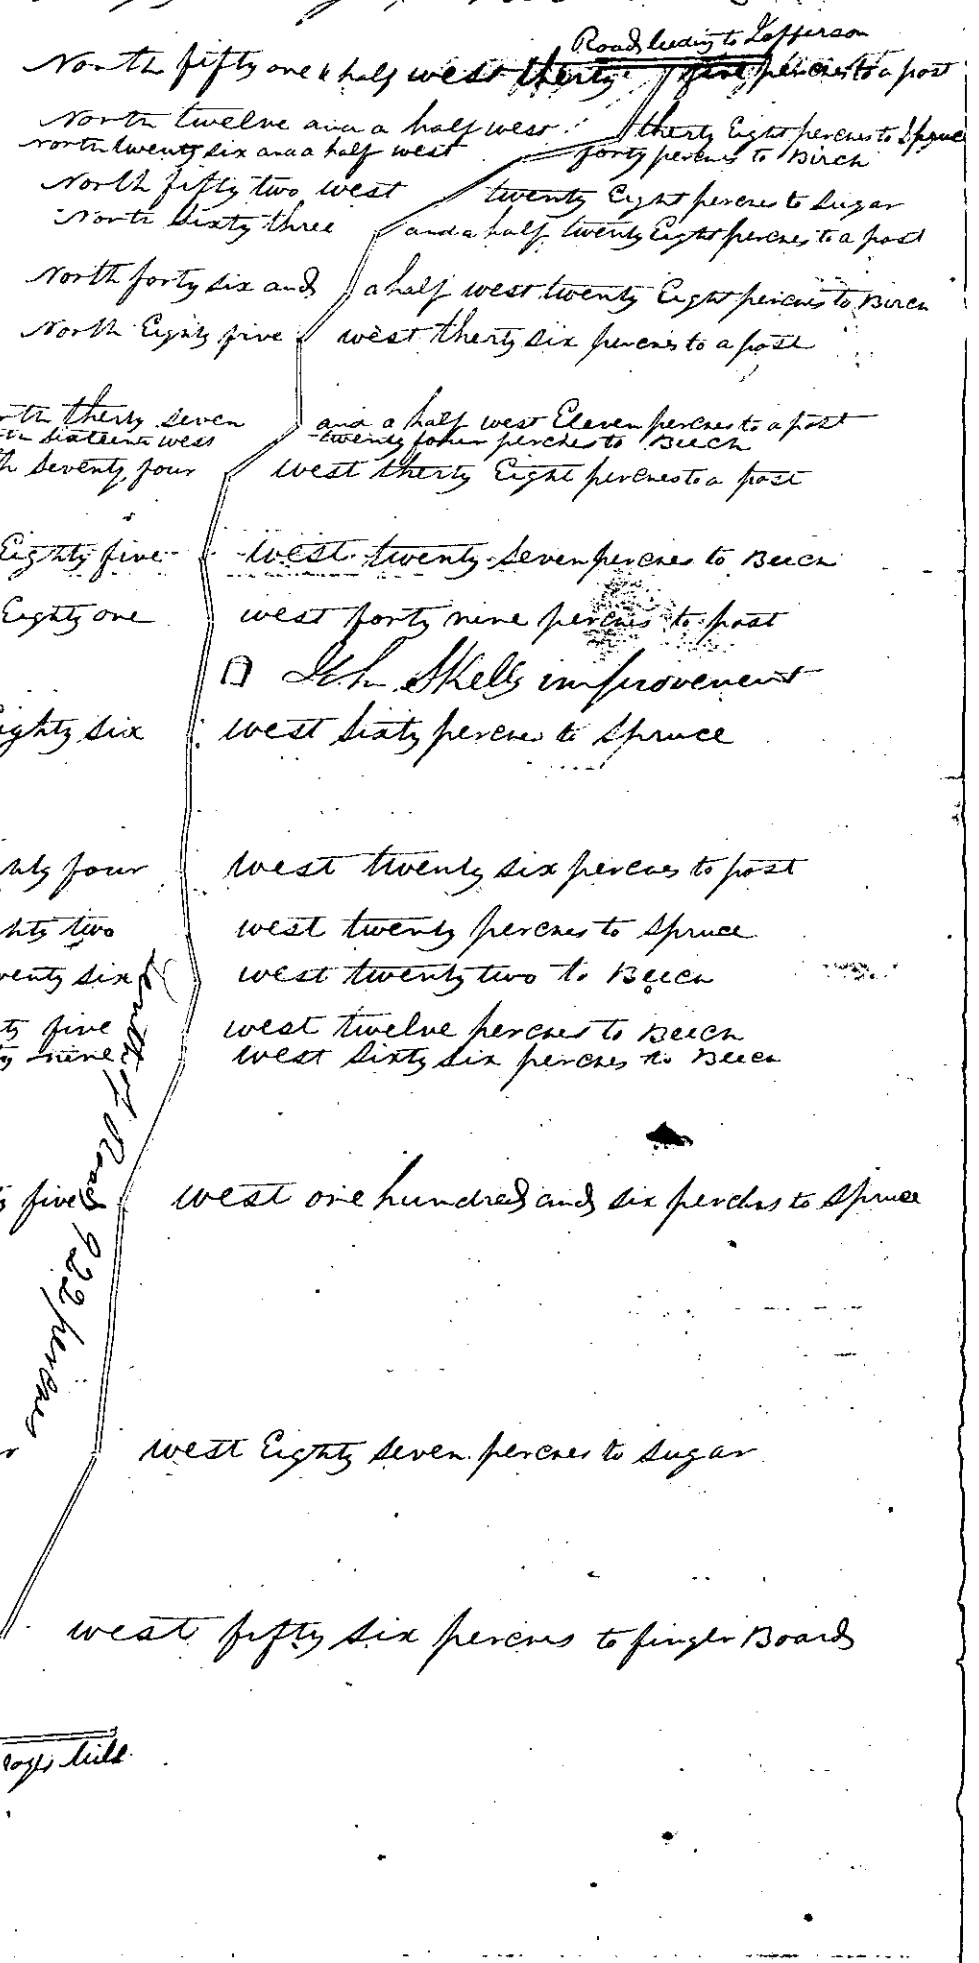 Road leeding to Jefferson
North fifty one & half west therty five perches to a post
North twelve and a half west therty Eight perches to Spruce
North twenty six and a half west forty perches to Birch
North fifty two west twenty Eight perches to Sugar
North Sixty three and a half twenty Eight perches to a post
North forty six and a half west twenty Eight perches to Birch
North Eighty five west therty six perches to a post
rth therty seven and a half west Eleven perches to a post
th Sixteen west twenty four perches to Beech
h Seventy four west therty Eight perches to a post
Eighty five west twenty seven perches to Beech
Eighty one west forty nine perches to post
John Skells improvement
ighty six west Sixty perches to Spruce
nty four west twenty six perches to post
hty two west twenty perches to Spruce
venty six west twenty two to Beech
ty five west twelve perches to Beech
ty nine west Sixty six perches to Beech
of Road 922 perches
five west one hundred and six perches to Spruce
r west Eighty seven perches to Sugar
west fifty six perches to finger Board